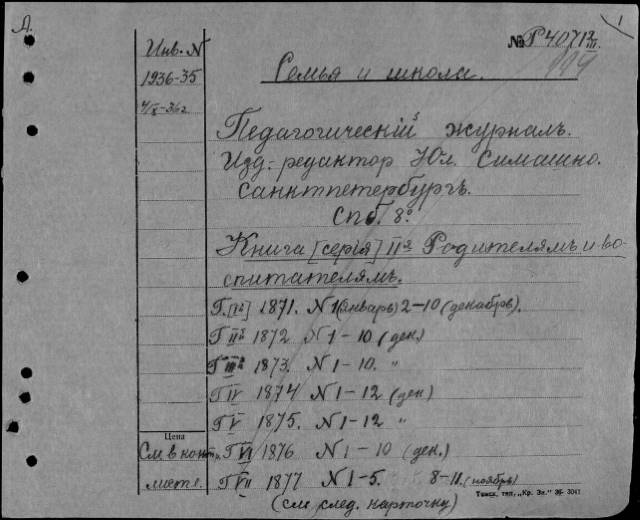 А.
1
Инв. N
1936-35
№ Р 4071 2/III.
199
Семья и школа.
Педагогическій журналъ.
Изд.-редактор Юл. Симашко.
Санктпетербургъ.
Спб. 8º
Книга [серія] IIя Родителямъ и во-
спитателямъ.
Г. [Iй] 1871. N 1 (январь) 2-10 (декабрь).
Г IIй 1872 N 1-10 (дек.)
Г IIIй 1873. N 1-10. "
Г IV 1874 N 1-12 (дек)
Г V 1875. N 1-12 "
Цена
См в конт.
Г VI 1876 N 1-10 (дек.)
Г VII 1877 N 1-5. 8-11. (ноябрь)
(см. след. карточку)
Томск, тип. „Кр. Зн." 36- 3041